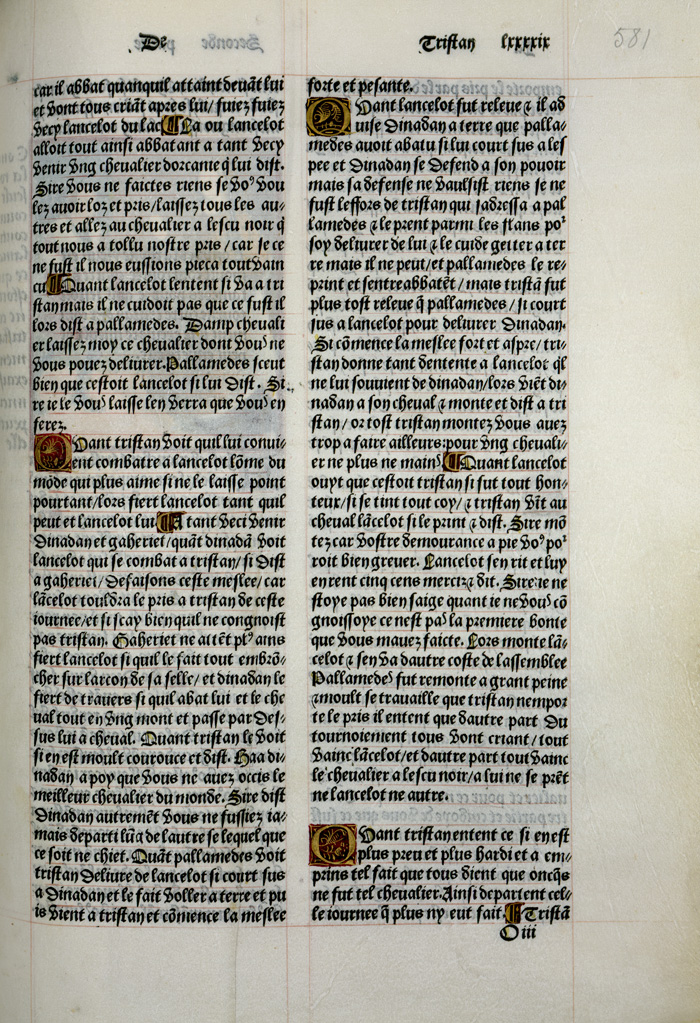 De
Tristan lxxxxix
581
car il abbat quanquil attaint deuāt lui
et vont tous criāt apres lui/ fuiez fuiez
vecy lancelot du lac La ou lancelot
alloit tout ainsi abbatant a tant vecy
venir vng cheualier dorcanie q̄ lui dist.
Sire vous ne faictes riens se voꝰ vou
lez auoir loz et pris/laissez tous les au-
tres et allez au cheualier a lescu noir q̄
tout nous a tollu nostre pris / car se ce
ne fust il nous eussions pieca tout vain
cu Quant lancelot lentent si va a tri
stan mais il ne cuidoit pas que ce fust il
lors dist a pallamedes. Damp cheuali
er laissez moy ce cheualier dont vouˢ ne
vous pouez deliurer. Pallamedes sceut
bien que cestoit lancelot si lui dist. Si
re ie le vouˢ laisse len verra que vouˢ en
ferez.
Quant tristan voit quil lui conui-
ent combatre a lancelot lōme du
mōde qui plus aime si ne le laisse point
pourtant/lors fiert lancelot tant quil
peut et lancelot lui A tant veci venir
Dinadan et gaheriet/quāt dinadā voit
lancelot qui se combat a tristan/si dist
a gaheriet/defaisons ceste meslee/car
lācelot touldra le pris a tristan de ceste
iournee/et si scay bien quil ne congnoist
pas tristan. Gaheriet ne attēt plꝰ ains
fiert lancelot si quil le fait tout embrō-
cher sur larcon de sa selle/ et dinadan le
fiert de trauers si quil abat lui et le che
ual tout en vng mont et passe par des-
sus lui a cheual. Quant tristan le voit
si en est moult courouce et dist. Haa di-
nadan a poy que vous ne auez occis le
meilleur cheualier du monde. Sire dist
Dinadan autremēt vous ne fussiez ia-
mais departi lūg de lautre se lequel que
ce soit ne chiet. Quāt pallamedes voit
tristan deliure de lancelot si court sus
a dinadan et le fait voller a terre et pu
is vient a tristan et cōmence la meslee
forte et pesante.
Quant lancelot fut releue ⁊ il ad
uise Dinadan a terre que palla-
medes auoit abatu si lui court sus a les
pee et Dinadan se defend a son pouoir
mais sa defense ne vaulsist riens se ne
fust leffors de tristan qui sadressa a pal
lamedes ⁊ le prent parmi les flans poꝰ
soy deliurer de lui ⁊ le cuide getter a ter
re mais il ne peut/et pallamedes le re-
print et sentreabbatēt/ mais tristā fut
plus tost releue q̄ pallamedes / si court
sus a lancelot pour deliurer Dinadan.
Si cōmence la meslee fort et aspre/ tri-
stan donne tant dentente a lancelot q̄l
ne lui souuient de dinadan/lors viēt di-
nadan a son cheual ⁊ monte et dist a tri
stan/ or tost tristan montez vous auez
trop a faire ailleurs:pour vng cheuali-
er ne plus ne mainˢ Quant lancelot
ouyt que cestoit tristan si fut tout hon-
teux/si se tint tout coy/ ⁊ tristan vīt au
cheual lācelot si le print ⁊ dist. Sire mō
tez car vostre demourance a pie voꝰ poꝰ
roit bien greuer. Lancelot sen rit et luy
en rent cinq cens mercis ⁊ dit. Sire ie ne
stoye pas bien saige quant ie ne vouˢ cō
gnoissoye ce nest paˢ la premiere bonte
que vous mauez faicte. Lors monte lā-
celot ⁊ sen va dautre coste de lassemblee
Pallamedeˢ fut remonte a grant peine
⁊ moult se trauaille que tristan nempor
te le pris il entent que dautre part du
tournoiement tous vont criant/ tout
vainc lācelot/et dautre part tout vainc
le cheualier a lescu noir/a lui ne se prēt
ne lancelot ne autre.
Quant tristan entent ce si en est
plus preu et plus hardi et a em-
prins tel fait que tous dient que oncq̄s
ne fut tel cheualier. Ainsi departent cel-
le iournee q̄ plus ny eut fait. Tristā
O iii